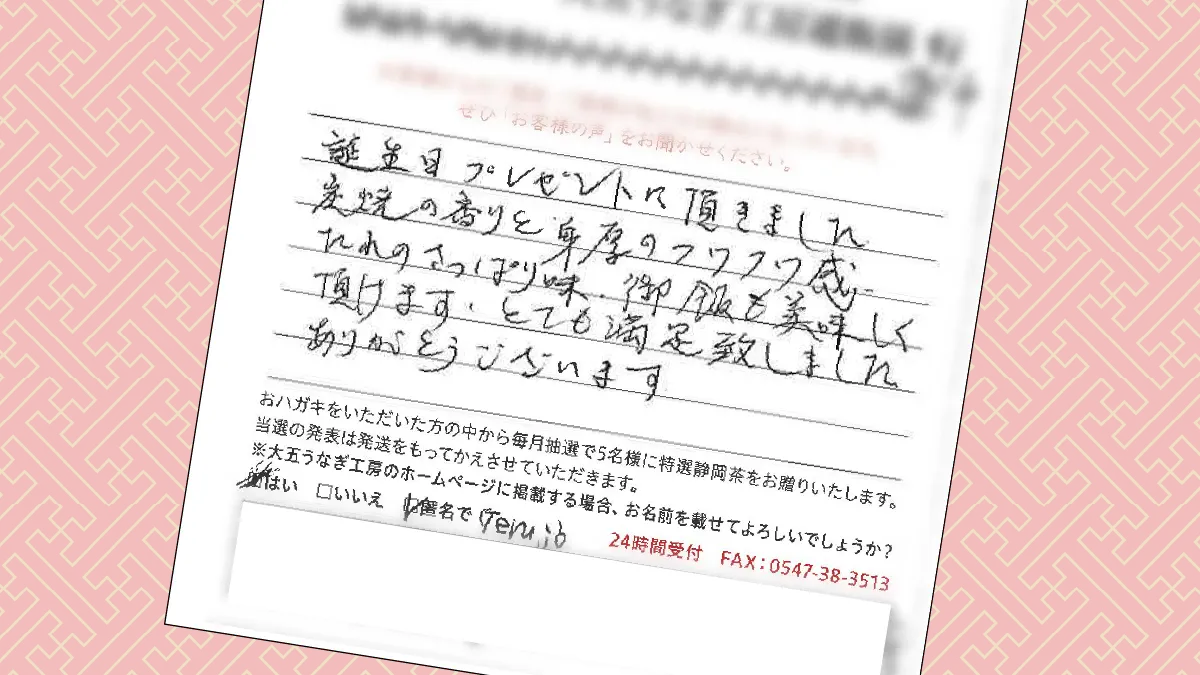 ぜひ「お客様の声」をお聞かせください。
誕生日プレゼントに頂きました
炭焼の香りと身厚のフワフワ感
たれのさっぱり味、御飯も美味しく
頂けます。とても満足致しました
ありがとうございます
おハガキをいただいた方の中から毎月抽選で5名様に特選静岡茶をお贈りいたします。
当選の発表は発送をもってかえさせていただきます。
※大五うなぎ工房のホームページに掲載する場合、お名前を載せてよろしいでしょうか?
はい □いいえ □匿名で
24時間受付 FAX:0547-38-3513